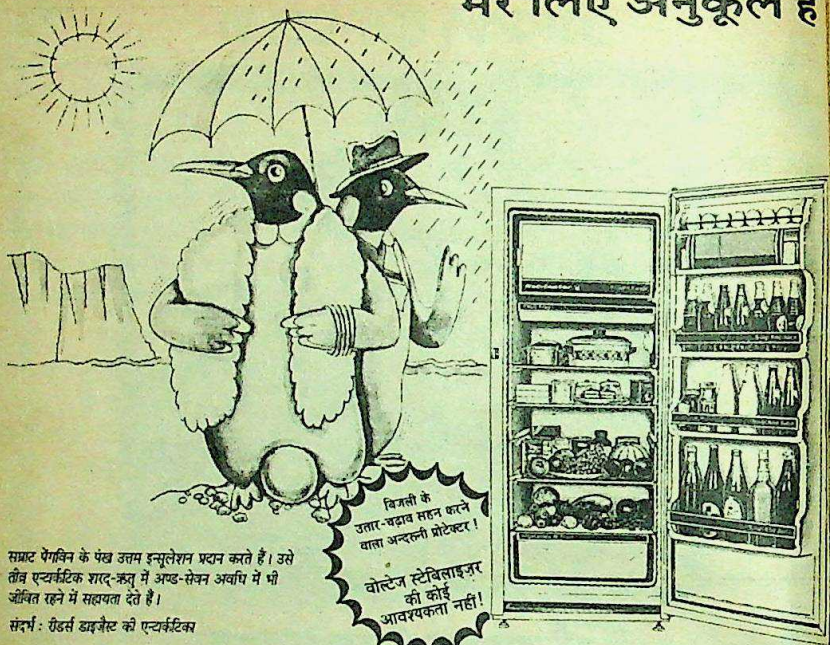 मेरे लिए अनुकूल है
बिजली के
उतार-चढ़ाव सहन करने
वाला अन्दरुनी प्रोटेक्टर !
वोल्टेज स्टेबिलाइज़र
की कोई
आवश्यकता नहीं!
सम्राट पेंगविन के पंख उत्तम इन्सुलेशन प्रदान करते हैं। उसे
तीव्र एन्टार्कटिक शरद्-ऋतु में अण्ड-सेवन अवधि में भी
जीवित रहने में सहायता देते हैं।
संदर्भ : रीडर्स डाइजैस्ट की एन्टार्कटिका